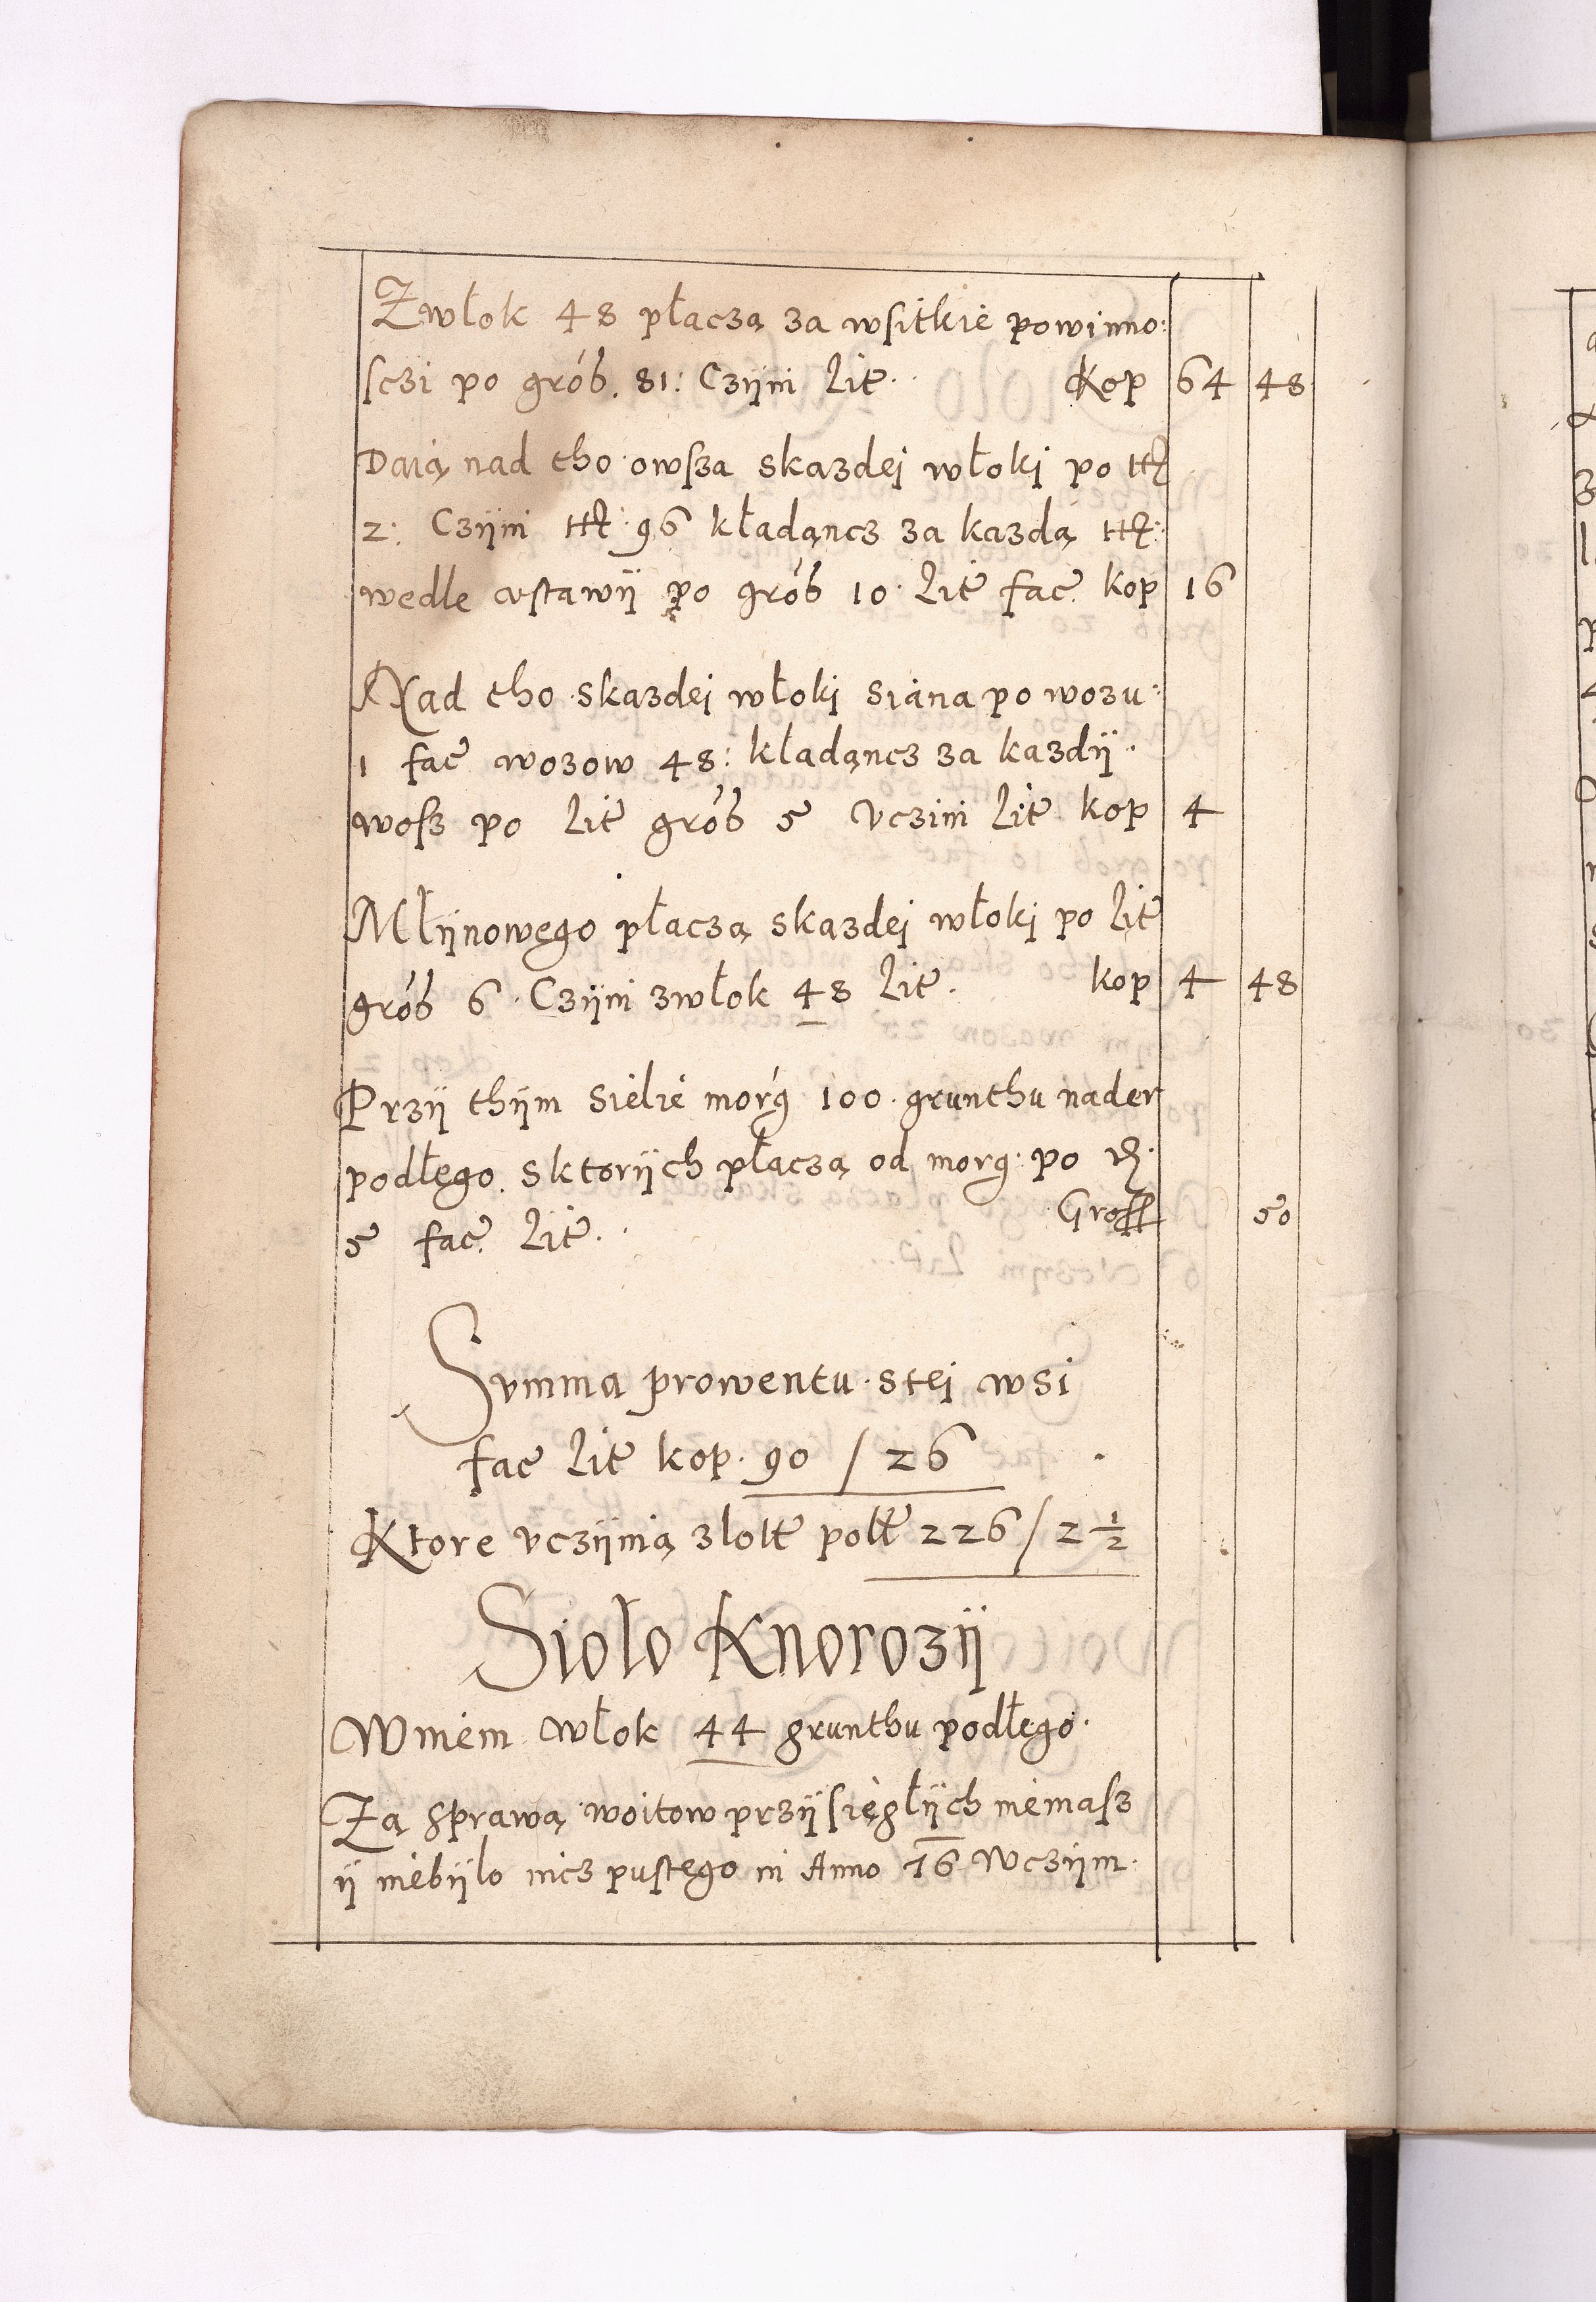 Zwłok 48 płaczą za wsitkie powinno:
sczi po gróß. 81: Czÿni Lit̃. Kop 64 48
Daią nad tho owsza skazdej włokj po ttſ
2: Czÿni ttſ: 96 kładąncz za kazdą ttſ:
wedle ustawÿ po gróß 10. Lit̃ fac̃. kop 16
Nad tho skazdej włokj siana po wozu:
1 fac̃ wozow 48: kładąncz za kazdÿ
wosz po Lit̃ gróß 5 vczini Lit̃ kop 4
Młÿnowęgo płaczą skazdej włokj po Lit̃
gróß 6. Czÿni zwłok 48 Lit̃. kop 4 48
Przÿ thÿm sielie morg 100. grunthu nader
podłęgo. sktorÿch płaczą od morg: po
5 fac̃. Lit̃. Groſſ 50
Summa prowentu stej wsi
fac̃ Lit̃ kop. 90 / 26
Ktore vczÿnią zlott polł 226 / 2 1/2
Sioło Knorozÿ
Wniem włok 44 grunthu podłęgo.
Zą sprawą woitow przÿsięgłÿch niemasz
ÿ niebÿlo nicz pustego in Anno 16 Wczÿm.